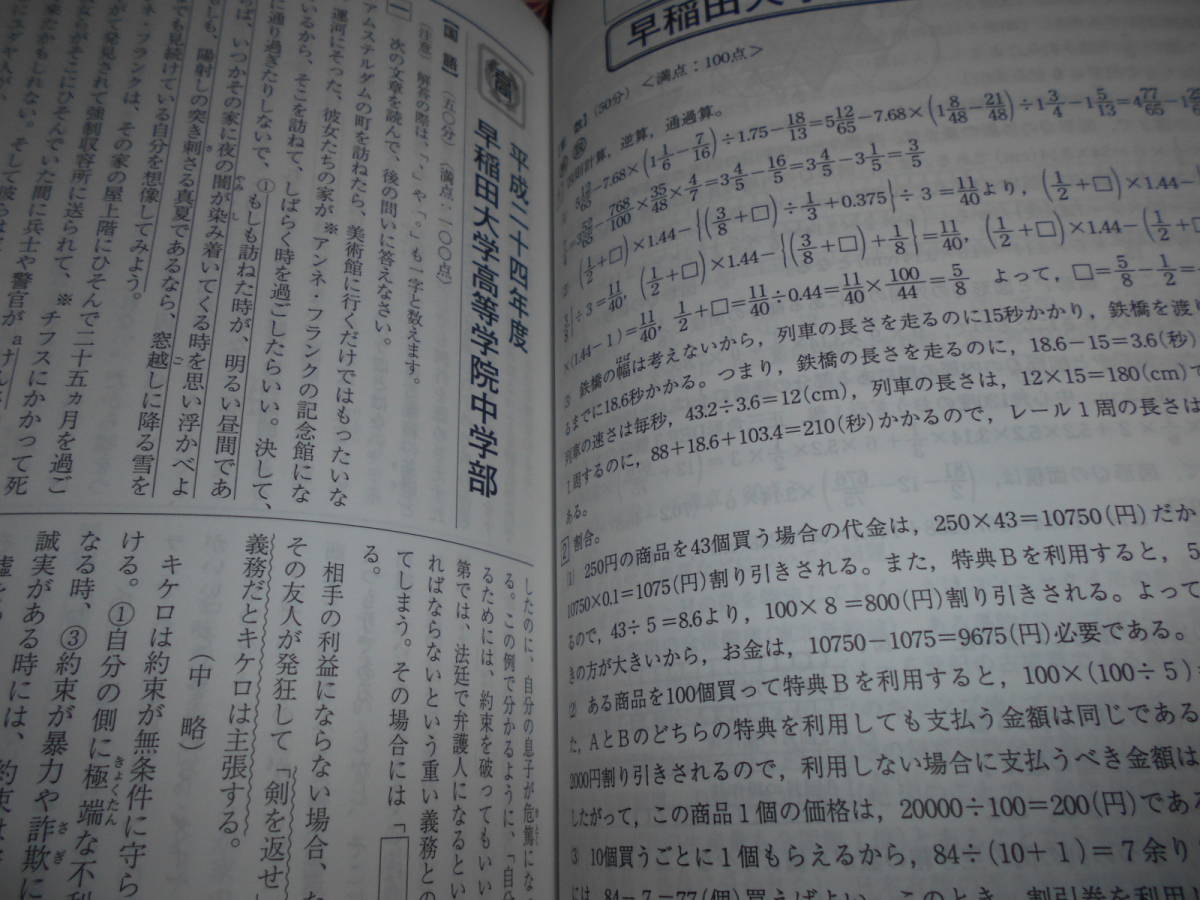 平成二十四年度
早稲田大学高等学院中学部
【国語】（五〇分）〈満点：一〇〇点〉
（注意）解答の際は、「、」や「。」も一字と数えます。
一 次の文章を読んで、後の問いに答えなさい。
アムステルダムの町を訪ねたら、美術館に行くだけではもったいな
運河にそった、彼女たちの家が※アンネ・フランクの記念館にな
いるから、そこを訪ねて、しばらく時を過ごしたらいい。決して、
に通り過ぎたりしないで、①もしも訪ねた時が、明るい昼間であ
ば、いつかその家に夜の闇が染み着いてくる時を思い浮かべよ
もしも、陽射しの突き刺さる真夏であるなら、窓越しに降る雪を
でも見続けている自分を想像してみよう。
ネ・フランクは、その家の屋上階にひそんで二十五ヵ月を過ご
が発見されて強制収容所に送られて、※チフスにかかって死
がそこにひそんでいた間に兵士や警官が a
来たかもしれない。そして
したのに、自分の息子が危篤にな
る。この例で分かるように、「自
るためには、約束を破ってもいい
第では、法廷で弁護人になるとい
ればならないという重い義務との
てしまう。その場合には「
る。
相手の利益にならない場合、た
その友人が発狂して「剣を返せ
義務だとキケロは主張する。
（中 略）
キケロは約束が無条件に守ら
ける。①自分の側に極端な不利
なる時、③約束が暴力や詐欺に
誠実がある時には、約束は
早稲田大学
（50分）＜満点：100点＞
計算，逆算，通過算。
$-7.68×(1\frac{1}{6}-\frac{7}{16})÷1.75-\frac{18}{13}=5\frac{12}{65}-7.68×(1\frac{8}{48}-\frac{21}{48})÷1\frac{3}{4}-1\frac{5}{13}=4\frac{77}{65}-1$
$-\frac{768}{100}×\frac{35}{48}×\frac{4}{7}=3\frac{4}{5}-\frac{16}{5}=3\frac{4}{5}-3\frac{1}{5}=\frac{3}{5}$
$(\frac{1}{2}+□)×1.44-\{(\frac{3}{8}+□)÷\frac{1}{3}+0.375\}÷3=\frac{11}{40}$より，$(\frac{1}{2}+□)×1.44-$
$÷3=\frac{11}{40}$，$(\frac{1}{2}+□)×1.44-\{(\frac{3}{8}+□)+\frac{1}{8}\}=\frac{11}{40}$，$(\frac{1}{2}+□)×1.44-(\frac{1}{2}+$
$×(1.44-1)=\frac{11}{40}$，$\frac{1}{2}+□=\frac{11}{40}÷0.44=\frac{11}{40}×\frac{100}{44}=\frac{5}{8}$ よって，$□=\frac{5}{8}-\frac{1}{2}=$
⑶ 鉄橋の幅は考えないから，列車の長さを走るのに15秒かかり，鉄橋を渡り
るまでに18.6秒かかる。つまり，鉄橋の長さを走るのに，18.6－15＝3.6(秒)
列車の速さは毎秒，43.2÷3.6＝12(cm)，列車の長さは，12×15＝180(cm)で
1周するのに，88＋18.6＋103.4＝210(秒)かかるので，レール1周の長さは
ある。
2 割合。
⑴ 250円の商品を43個買う場合の代金は，250×43＝10750(円)だか
10750×0.1＝1075(円)割り引きされる。また，特典Bを利用すると，5
るので，43÷5＝8.6より，100×8＝800(円)割り引きされる。よって
きの方が大きいから，お金は，10750－1075＝9675(円)必要である。
⑵ ある商品を100個買って特典Bを利用すると，100×(100÷5)
た，AとBのどちらの特典を利用しても支払う金額は同じである
2000円割り引きされるので，利用しない場合に支払うべき金額は
したがって，この商品1個の価格は，20000÷100＝200(円)であ
⑶ 10個買うごとに1個もらえるから，84÷(10＋1)＝7余り
には，84－7＝77(個)買えばよい。このとき，割引券を利用